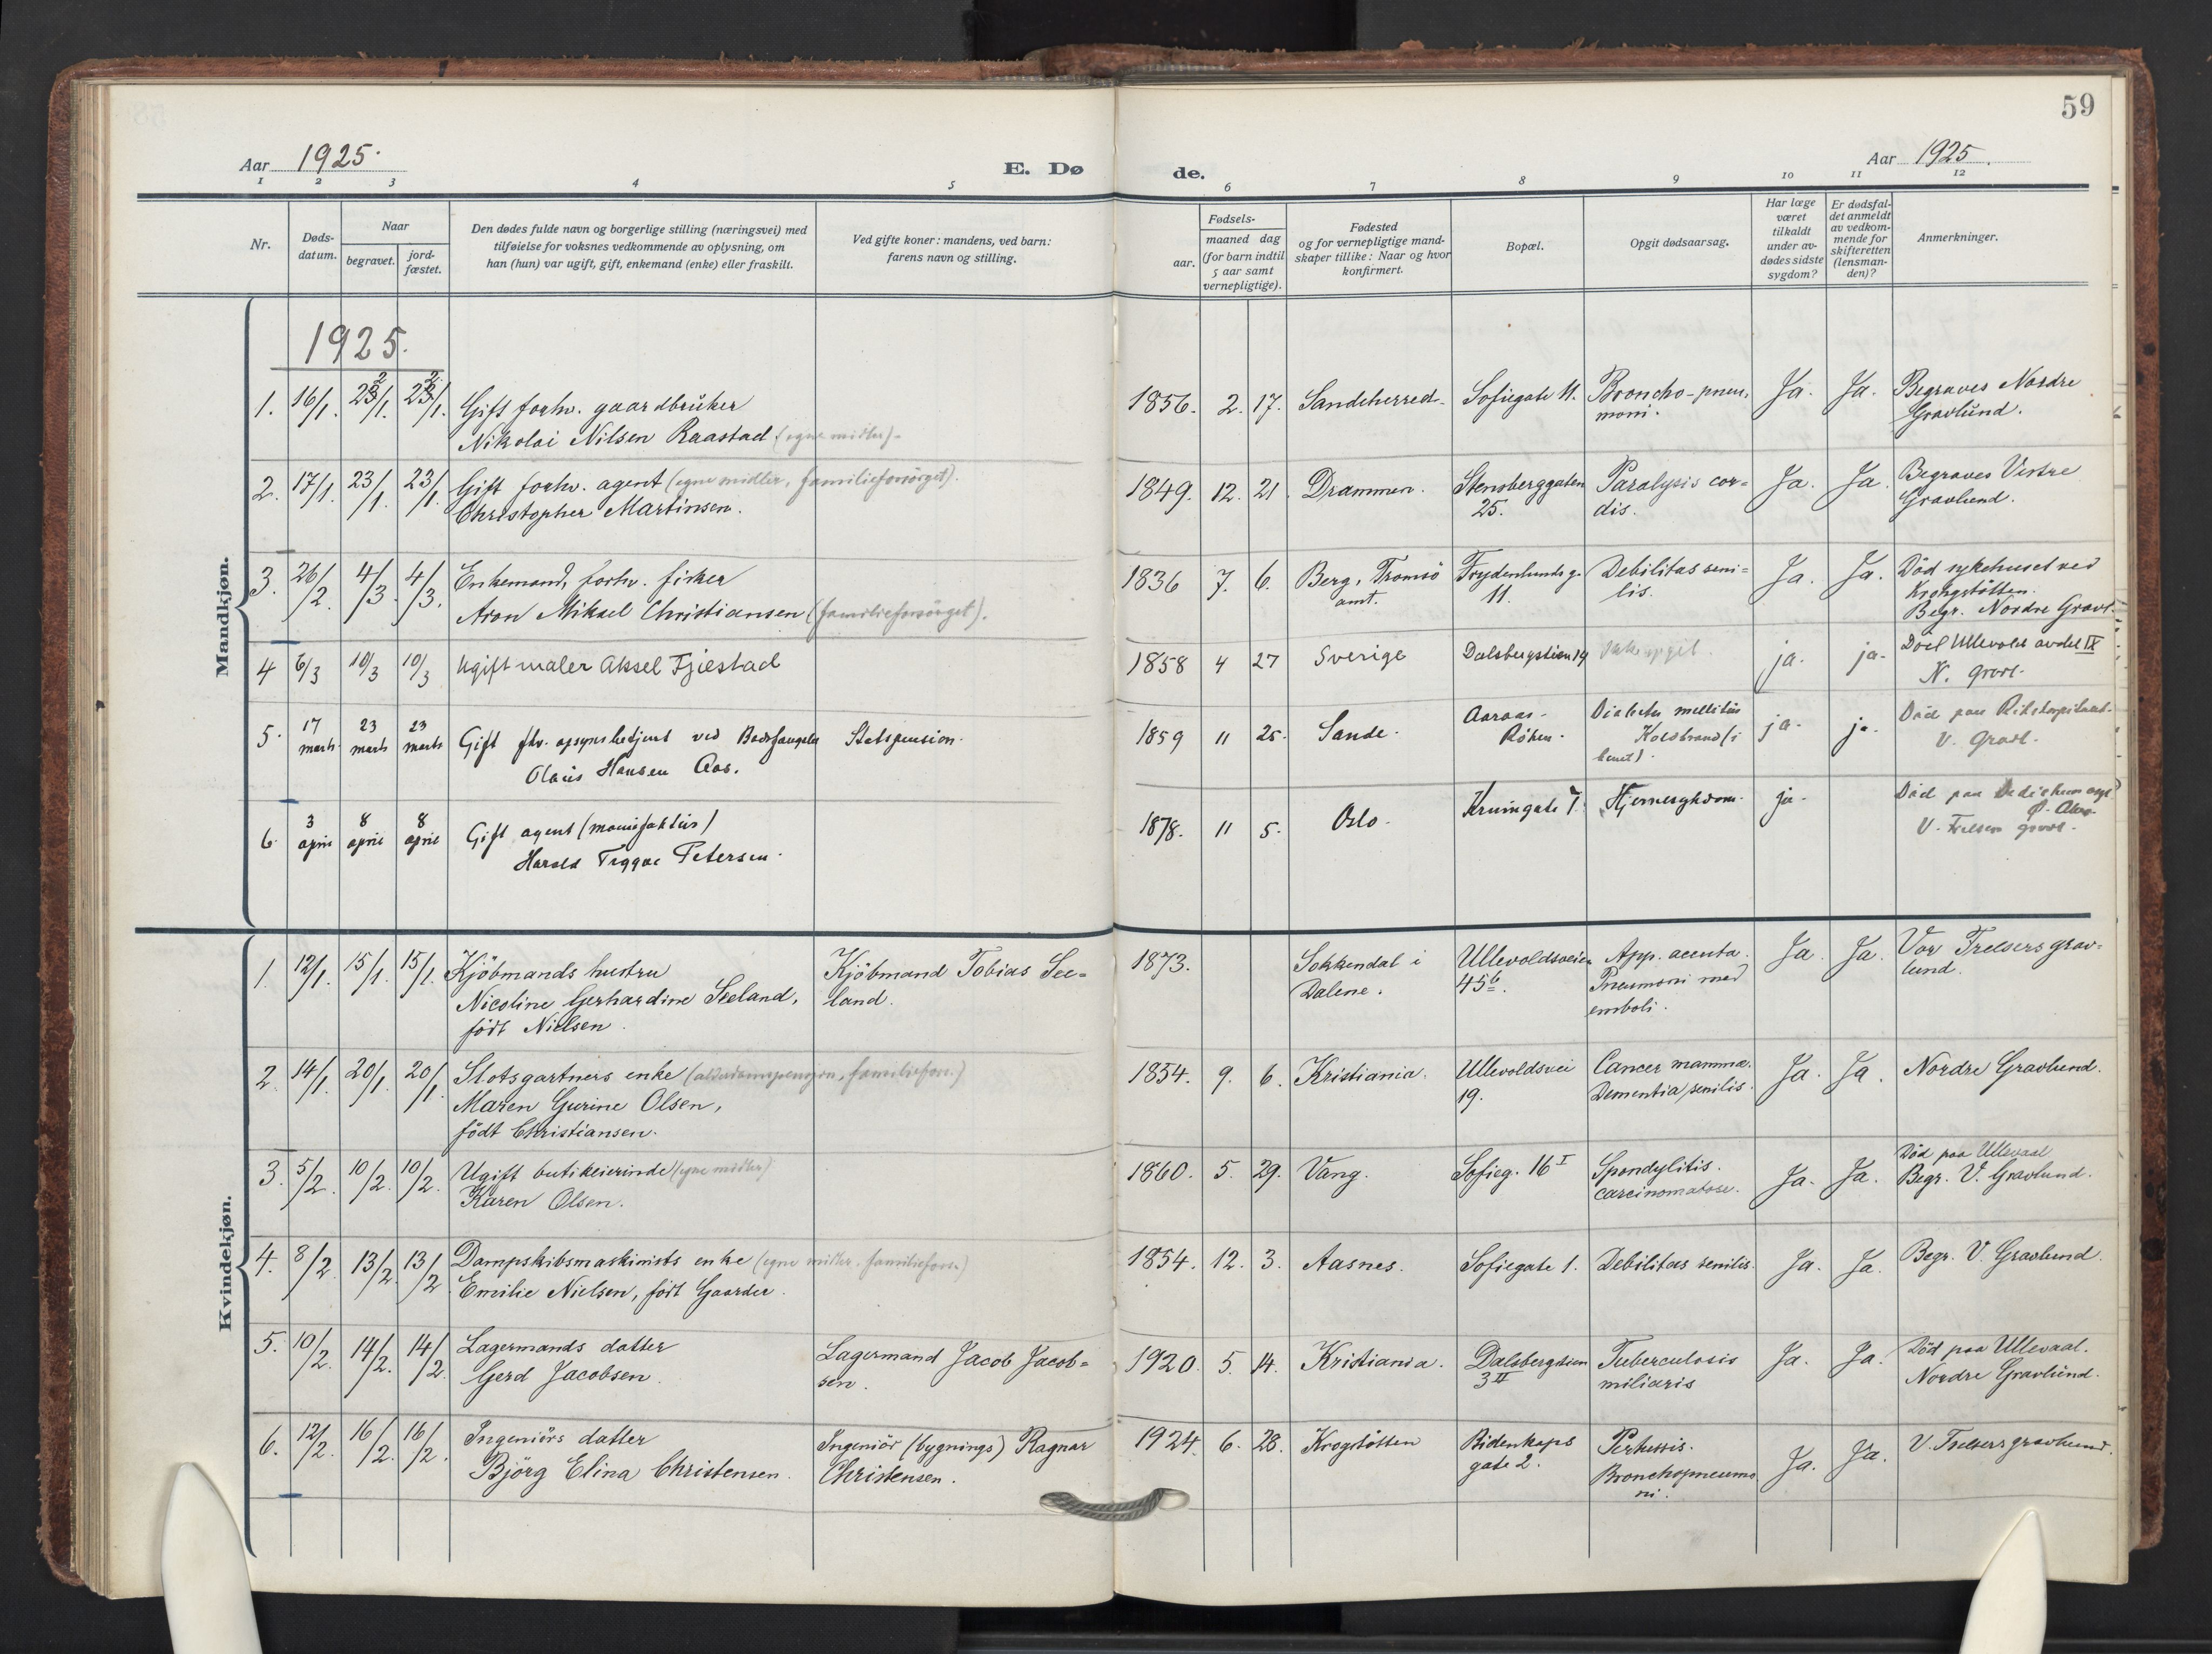 59
Aar 1925.
E. Dø de.
Aar 1925.
1 2 3 4 5 6 7 8 9 10 11 12
Nr.
Døds-
datum.
Naar
begravet.
jord-
fæstet.
Den dødes fulde navn og borgerlige stilling (næringsvei) med
tilføielse for voksnes vedkommende av oplysning, om
han (hun) var ugift, gift, enkemand (enke) eller fraskilt.
Ved gifte koner: mandens, ved barn:
farens navn og stilling.
Fødsels-
aar.
maaned dag
(for barn indtil
5 aar samt
vernepligtige).
Fødested
og for vernepligtige mand-
skaper tillike: Naar og hvor
konfirmert.
Bopæl.
Opgit dødsaarsag.
Har læge
været
tilkaldt
under av-
dødes sidste
sygdom?
Er dødsfal-
det anmeldt
av vedkom-
mende for
skifteretten
(lensman-
den)?
Anmerkninger.
Mandkjøn.
1925.
1. 16/1. 23/1. 23/1.
Gift forhv. gaardbruker
Nikolai Nilsen Raastad (egne midler).
1856. 2. 17. Sandeherred. Sofiegate 11.
Broncho-pneu-
moni.
Ja. Ja.
Begraves Nordre
Gravlund.
2. 17/1. 23/1. 23/1.
Gift forhv. agent (egne midler, familieforsörget).
Christopher Martinsen.
1849. 12. 21. Drammen.
Stensberggaten
25.
Paralysis cor=
dis.
Ja. Ja.
Begraves Vestre
Gravlund.
3. 26/2. 4/3. 4/3.
Enkemand, forhv. fisker
Aron Mikael Christiansen (familieforsörget).
1836 7. 6.
Berg, Tromsö
amt.
Frydenlundsg.
11.
Debilitas seni=
lis.
Ja. Ja.
Död sykehuset ved
Krohgstötten.
Begr. Nordre Gravl.
4 6/3 10/3 10/3
Ugift maler Aksel Fjæstad
1858 4 27 Sverige Dalsbergstien 14
Ikke opgit.
ja. ja.
Död Ullevold avdel IX
N. gravl.
5. 17 marts 23 marts 23 marts
Gift fhv. opsynsbetjent ved Bodsfængslet
Olaüs Hansen Aas.
Statspension.
1859 11 25. Sande.
Aaraas-
Röken.
Diabetes mellitus
Koldbrand (i
benet).
ja. ja.
Död paa Rikshospitalet.
V. Gravl.
6. 3 april 8 april 8 april
Gift agent (manufaktür)
Harald Trygve Petersen.
1878. 11 5. Oslo. Krumgate 7. Hjernesykdom. ja.
Död paa
V. Frelsers gravl.
Kvindekjøn.
1. 12/1. 15/1. 15/1.
Kjöbmands hustru
Nicoline Gerhardine Seeland,
född Nielsen.
Kjöbmand Tobias See=
land.
1873.
Sokkendal i
Dalene.
Ullevoldsveien
45b.
App. acenta.
Pneumoni med
emboli.
Ja. Ja.
Vor Frelsers grav=
lund.
2. 14/1. 20/1. 20/1.
Slotsgartners enke (alderdomspension, familiefors.)
Maren Gurine Olsen,
födt Christiansen.
1854. 9. 6. Kristiania.
Ullevoldsvei
19.
Cancer mammæ.
Dementia senilis.
Ja. Ja.
Nordre Gravlund.
3. 5/2. 10/2. 10/2.
Ugift butikeierinde (egne midler)
Karen Olsen.
1860. 5. 29. Vang. Sofieg. 16 I
Spondylitis.
carcinomatose.
Ja. Ja.
Död paa Ullevaal
Begr. V. Gravlund.
4. 8/2. 13/2. 13/2.
Dampskibsmaskinists enke (egne midler. familiefors.)
Emilie Nielsen, födt Gaarder.
1854. 12. 3. Aasnes. Sofiegate 1. Debilitas senilis. Ja. Ja.
Begr. V. Gravlund.
5. 10/2. 14/2. 14/2.
Lagermands datter
Gerd Jacobsen.
Lagermand Jacob Jacob=
sen.
1920. 5. 14. Kristiania.
Dalsbergstien
3 II
Tuberculosis
miliaris
Ja. Ja.
Död paa Ullevaal.
Nordre Gravlund.
6. 12/2. 16/2. 16/2.
Ingeniörs datter
Björg Elina Christensen.
Ingeniör (bygnings) Ragnar
Christensen.
1924. 6. 28. Krogstötten
Bidenkaps
gate 2.
Pertussis.
Bronchopneumo
ni.
Ja. Ja.
V. Frelsers gravlund.